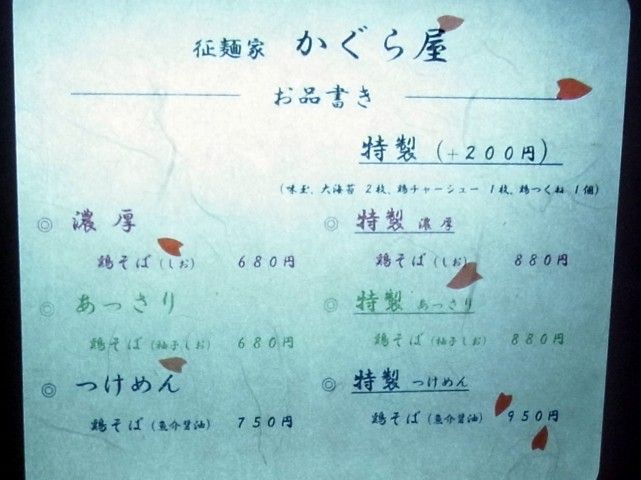 征麺家 かぐら屋
お品書き
特製(+200円)
(味玉、大海苔 2枚、鶏チャーシュー 1枚、鶏つくね 1個)
◎ 濃厚
鶏そば(しお) 680円
◎ あっさり
鶏そば(柚子しお) 680円
◎ つけめん
鶏そば(魚介醤油) 750円
◎ 特製 濃厚
鶏そば(しお) 880円
◎ 特製 あっさり
鶏そば(柚子しお) 880円
◎ 特製 つけめん
鶏そば(魚介醤油) 950円